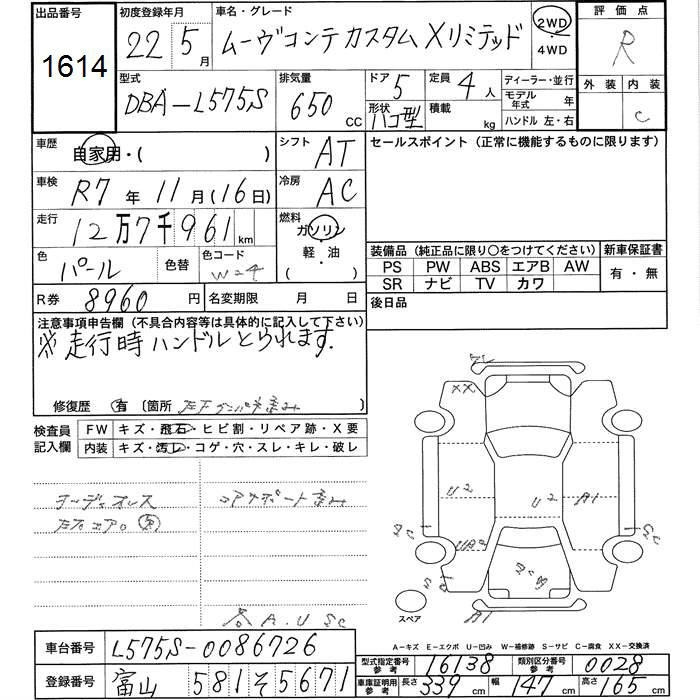 出品番号
1614
初度登録年月
22 5月
車名・グレード
ムーヴコンテ カスタム Xリミテッド
2WD
4WD
評価点
R
外装 内装
C
型式
DBA-L575S
排気量
650 CC
ドア 5
形状 ハコ型
定員 4人
積載 kg
ディーラー・並行
モデル年式 年
ハンドル 左・右
車歴
自家用・( )
シフト AT
セールスポイント (正常に機能するものに限ります)
車検 R7年 11月(16日)
冷房 AC
走行 12万7千961km
燃料
ガソリン
軽・油
( )
色 パール 色替 色コード W24
装備品 (純正品に限り○をつけてください)
PS PW ABS エアB AW
SR ナビ TV カワ
新車保証書
有・無
R券 8960円 名変期限 月 日
後日品
注意事項申告欄 (不具合内容等は具体的に記入して下さい)
※走行時ハンドルとられます.
修復歴 有 〔箇所
検査員記入欄
FW キズ・飛石・ヒビ割・リペア跡・X要
内装 キズ・汚レ・コゲ・穴・スレ・キレ・破レ
コアサポート
A.U SC
XX
U2
U2
A1
UA2
A1
スペア
A-キズ E-エクボ U-凹み W-補修跡 S-サビ C-腐食 XX-交換済
車台番号 L575S-0086726
登録番号 富山 581 そ 5671
型式指定番号参考 16138 類別区分番号参考 0028
車庫証明用参考 長さ 339cm 幅 147cm 高さ 165cm